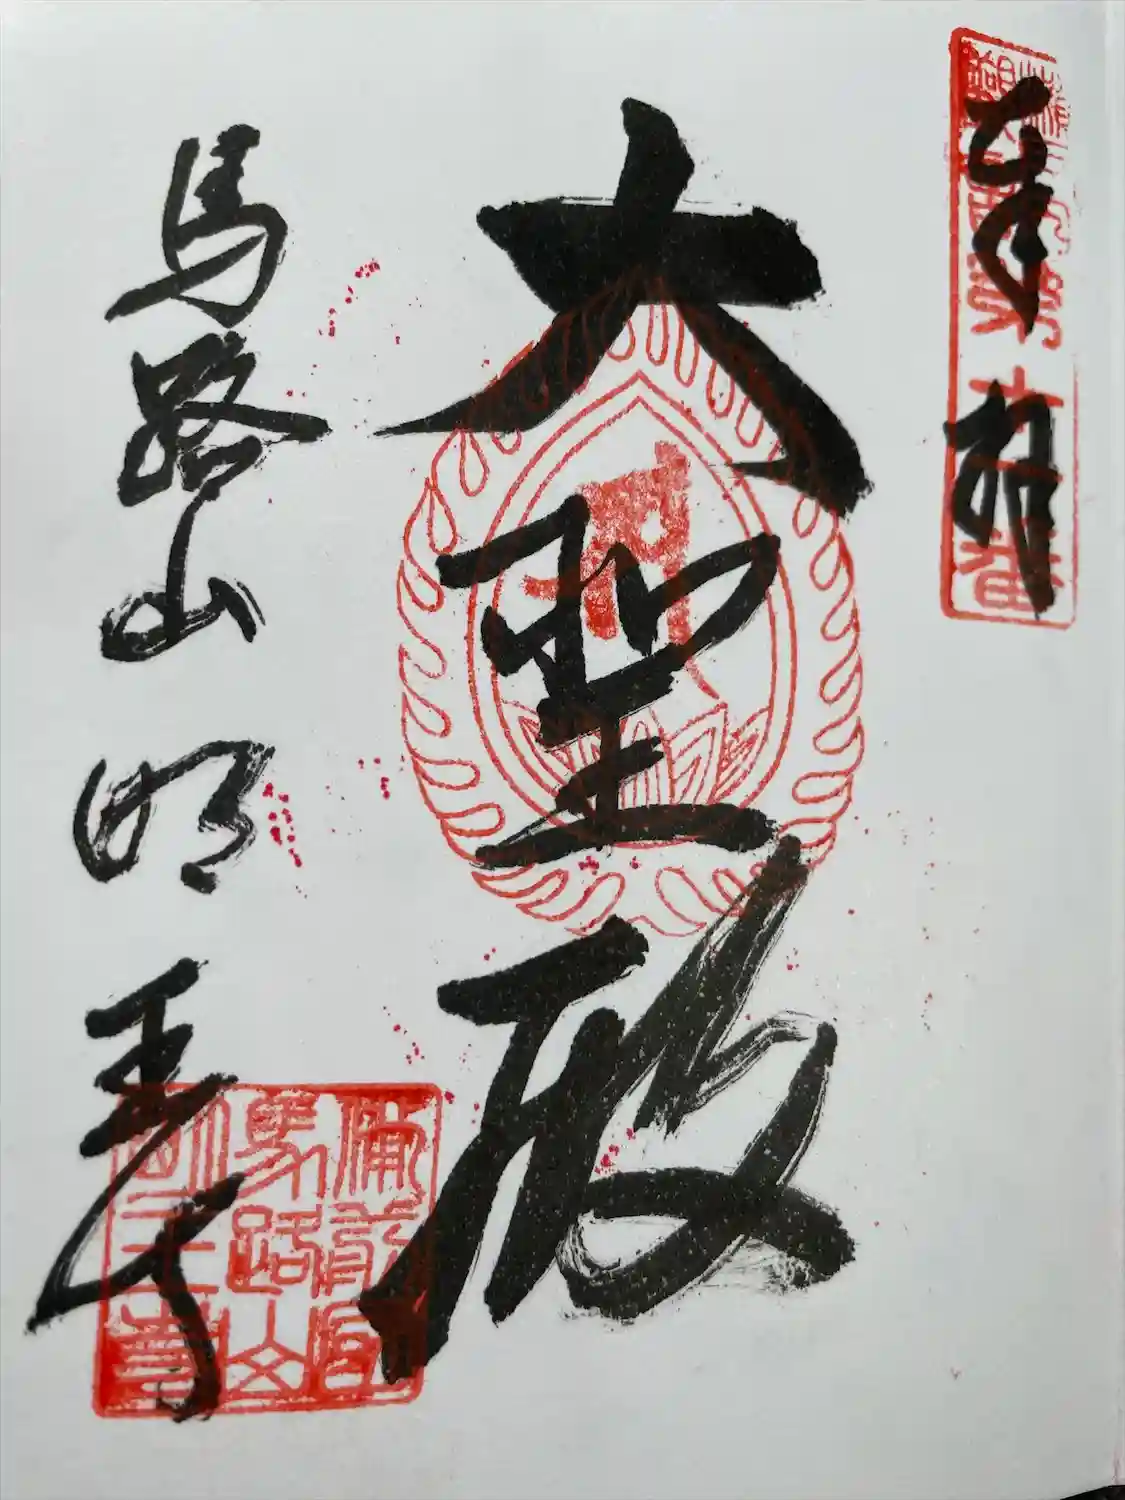 奉拝
大聖殿
馬路山 明王寺
備前国
馬路山
明王寺